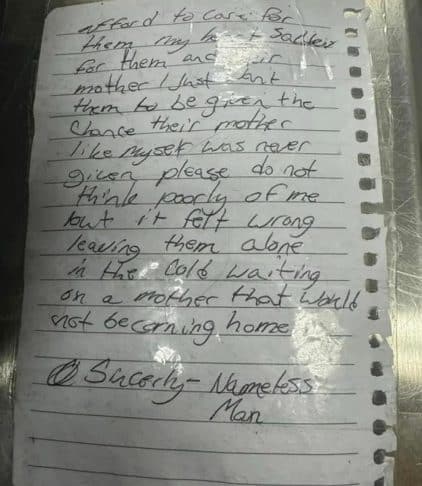 afford to care for
them my heart saddens
for them and their
mother I Just want
them to be given the
Chance their mother
like myself was never
given please do not
think poorly of me
but it felt wrong
leaving them alone
in the Cold waiting
on a mother that would
not be coming home
Sncerly- Nameless
Man